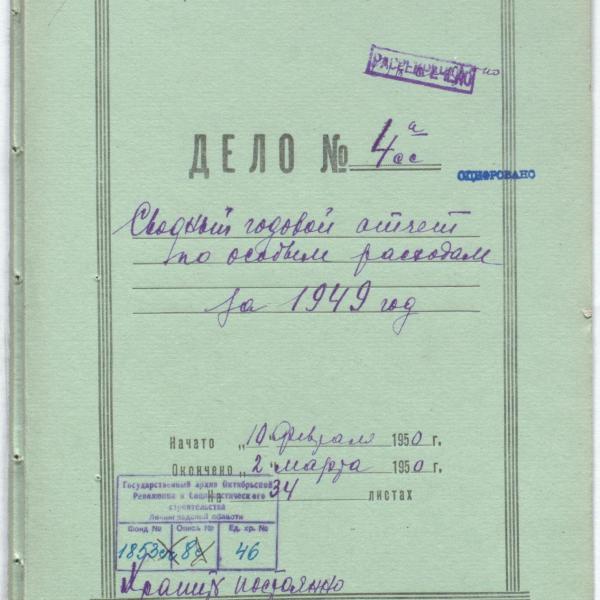 РАССЕКРЕЧЕНО
ДЕЛО № 4а сс
ОЦИФРОВАНО
Сводный годовой отчет
по особым расходам
за 1949 год
Начато „10" февраля 1950 г.
Окончено „2" марта 1950 г.
На 34 листах
Государственный архив Октябрьской
Революции и Социалистического
строительства
Ленинградской области
Фонд № Опись № Ед. хр. №
1853 8 46
Хранить постоянно